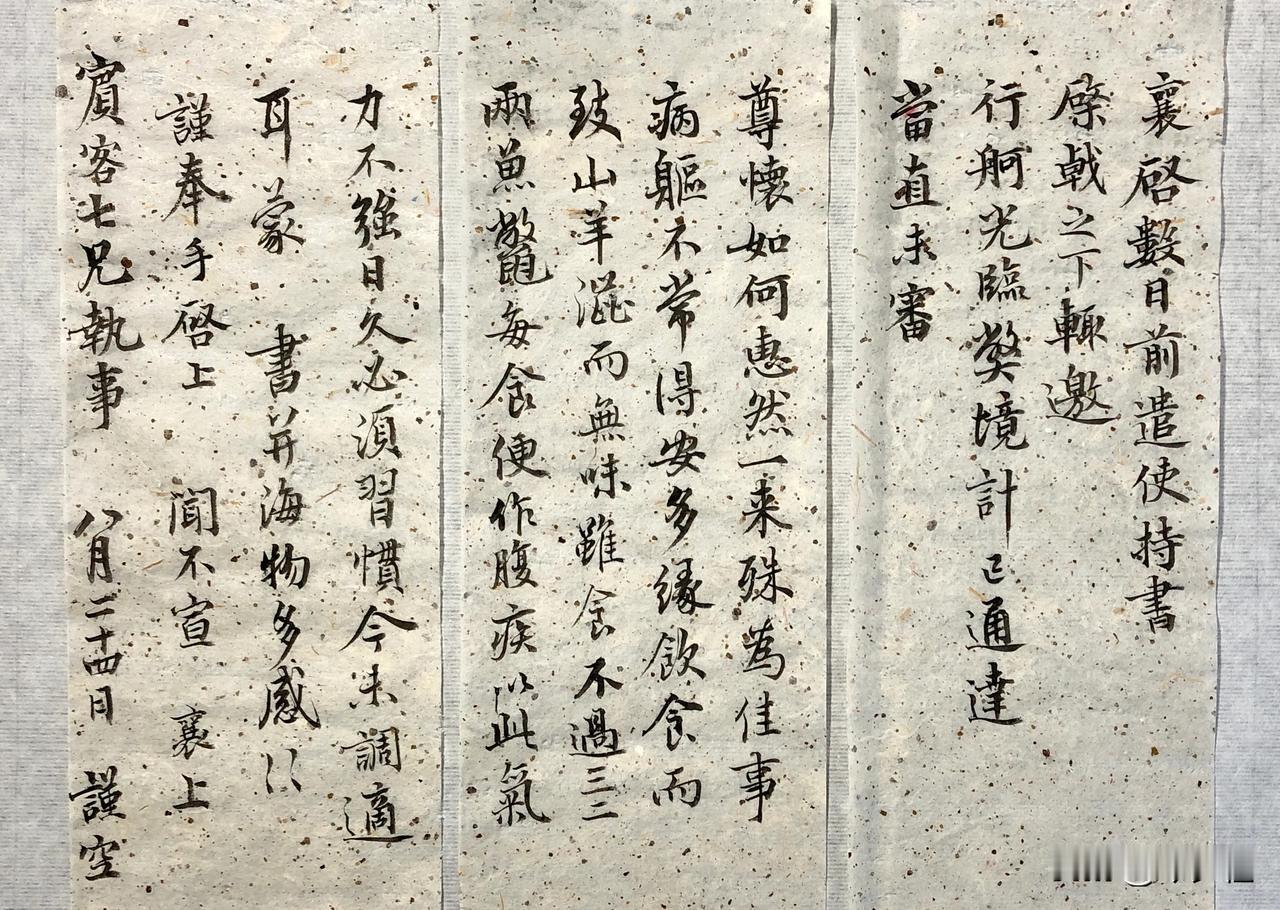 襄啓數日前遣使持書
棨戟之下輙邀
行舸光臨獘境計已通達
當直未審
尊懷如何惠然一来殊為佳事
病軀不常得安多縁飲食而
致山羊㴽而無味雖食不過三二
兩魚鼈每食便作腹疾以此氣
力不強日久必須習慣今未調適
耳蒙 書并海物多感㣲
謹奉手啓上 聞不宣 襄上
賔客七兄執事 八月二十四日 謹空